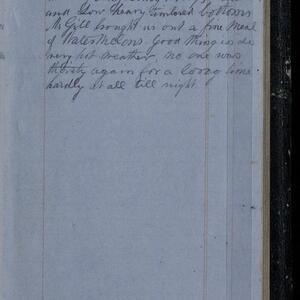 and Low heavy timbered bottoms
McGill brought us out a fine meal
of Watermelons Good thing is de
very hot weather, no one was
thirsty again for a loong time
hardly at all till night